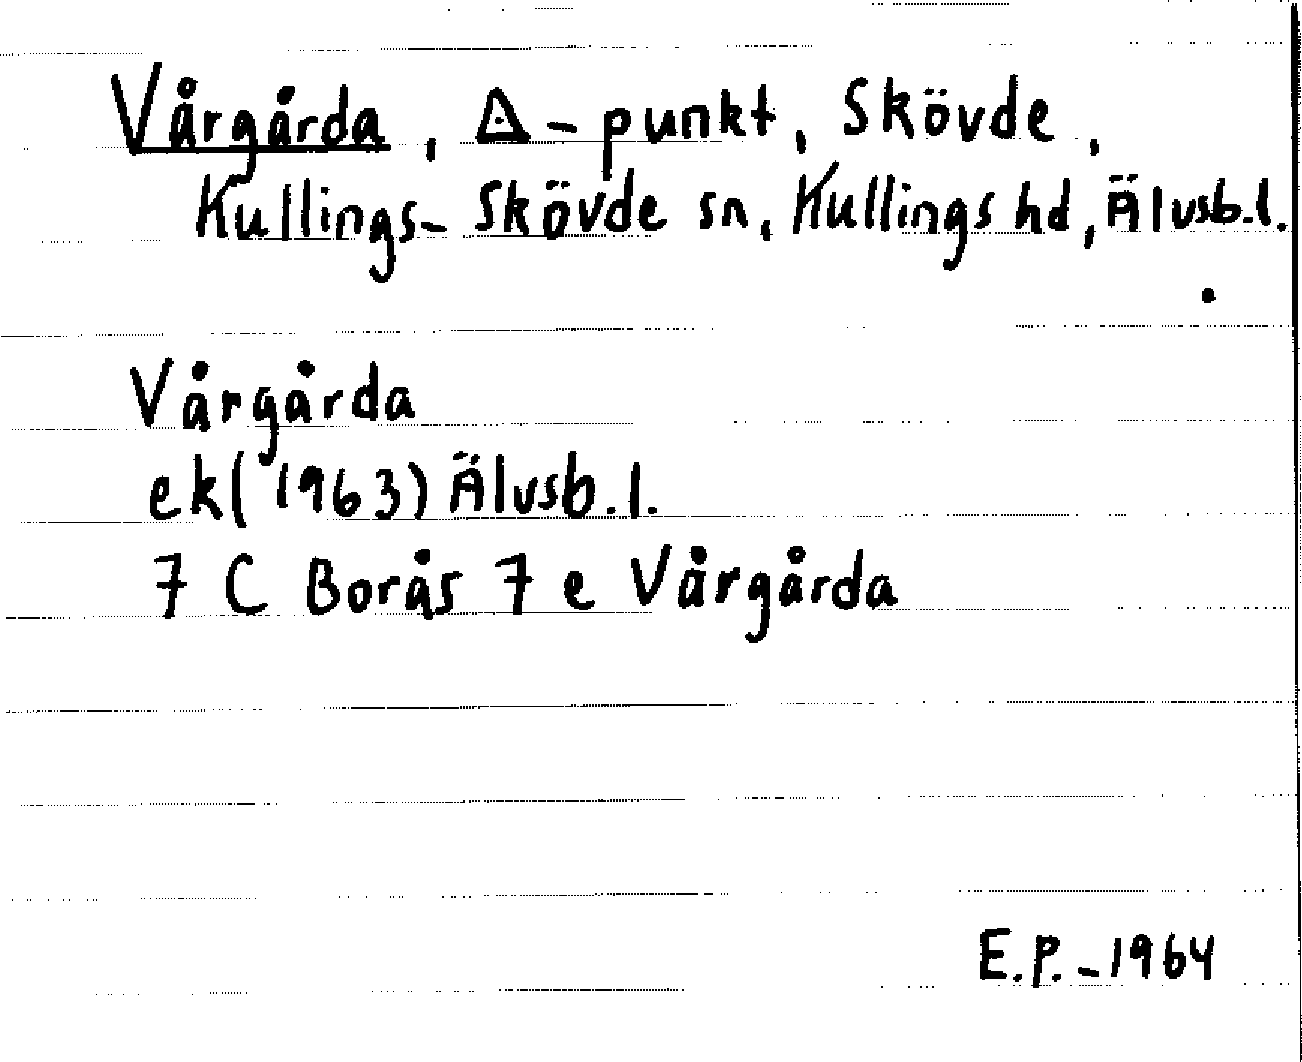 Vårgårda, Δ-punkt, Skövde,
Kullings-Skövde sn, Kullings hd, Älvsb.l.
Vårgårda
ek(1963) Älvsb.l.
7 C Borås 7 e Vårgårda
E.P.-1964